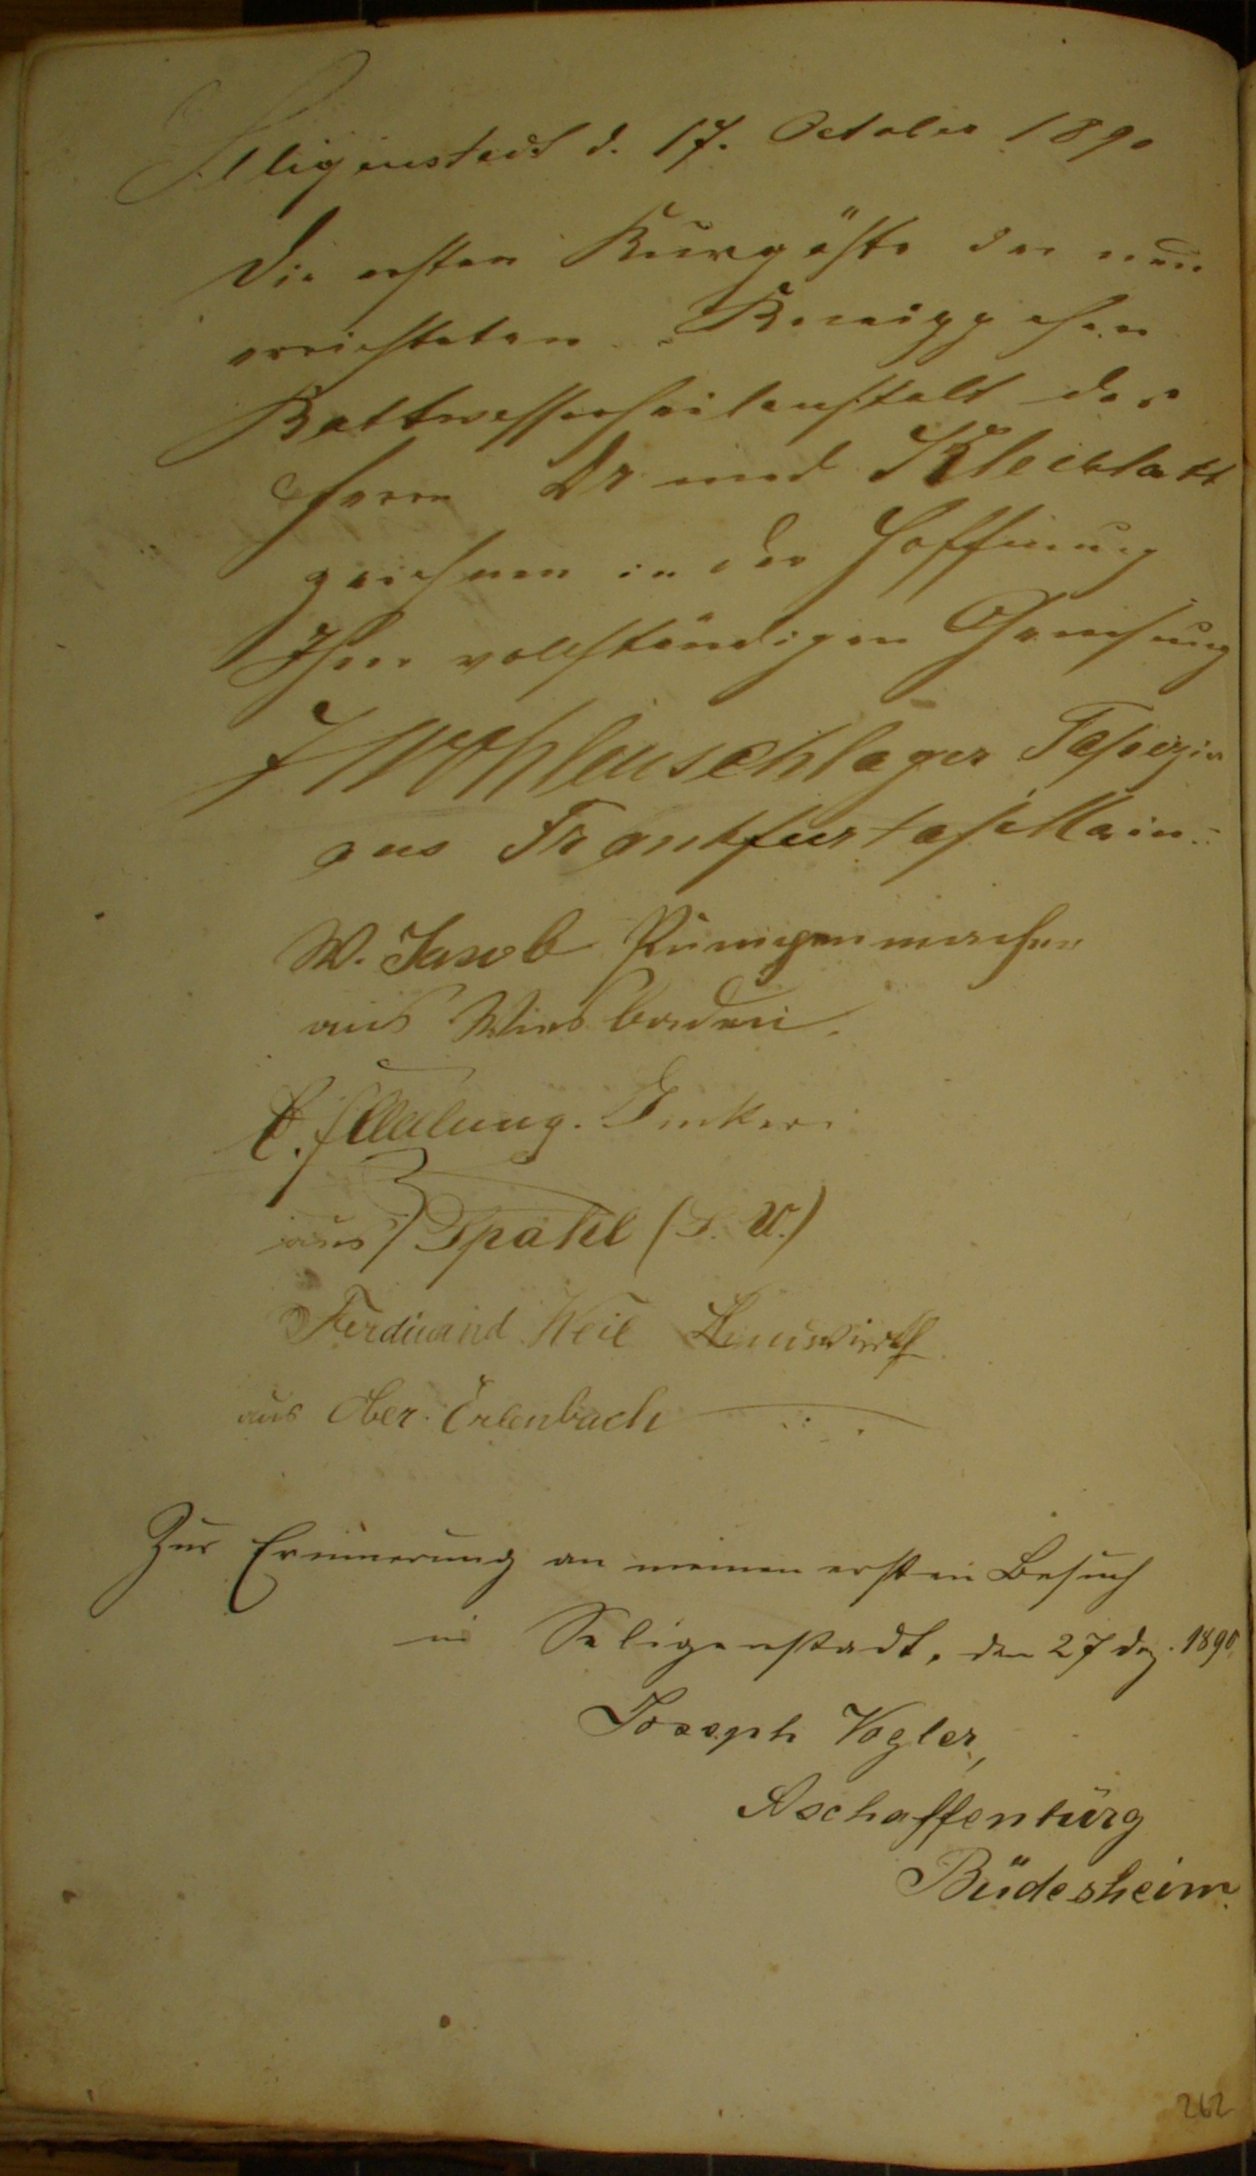 Seligenstadt d. 17. October 1890
Die ersten Kurgäste der neu
errichteten Kneippschen
Kaltwasserheilanstalt des
Herrn Dr med Kleiblatt
zeichnen in der Hoffnung
Ihrer vollständigen Genesung
J Wohlenschlager Tapezir
aus Frankfurt a/Main.
W. Jacob Pumpenmacher
aus Wiesbaden.
C. Adelung. Imker
aus Spahl (S. W.)
Ferdinand Weil
aus Ober-Erlenbach
Zur Erinnerung an meinen ersten Besuch
in Seligenstadt, den 27 Dez. 1890,
Joseph Vogler,
Aschaffenburg
Büdesheim.
262